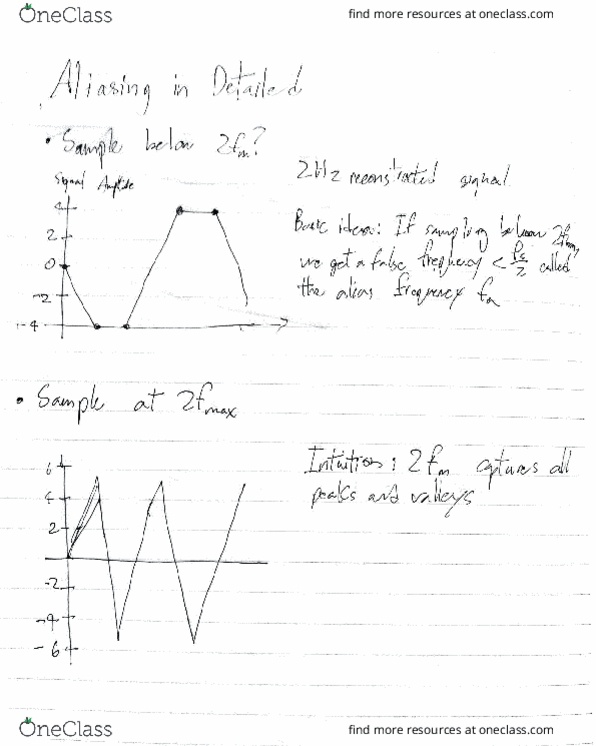 OneClass
find more resources at oneclass.com
Aliasing in Detailed
• Sample below 2fm?
Signal Amplitude
4
2
0
-2
-4
2Hz reconstructed signal
Basic idea: If sampling below 2fm,
we get a false frequency < fs/2 called
the alias frequency fa
• Sample at 2fmax
6
4
2
-2
-4
-6
Intuition: 2fm captures all
peaks and valleys
OneClass
find more resources at oneclass.com